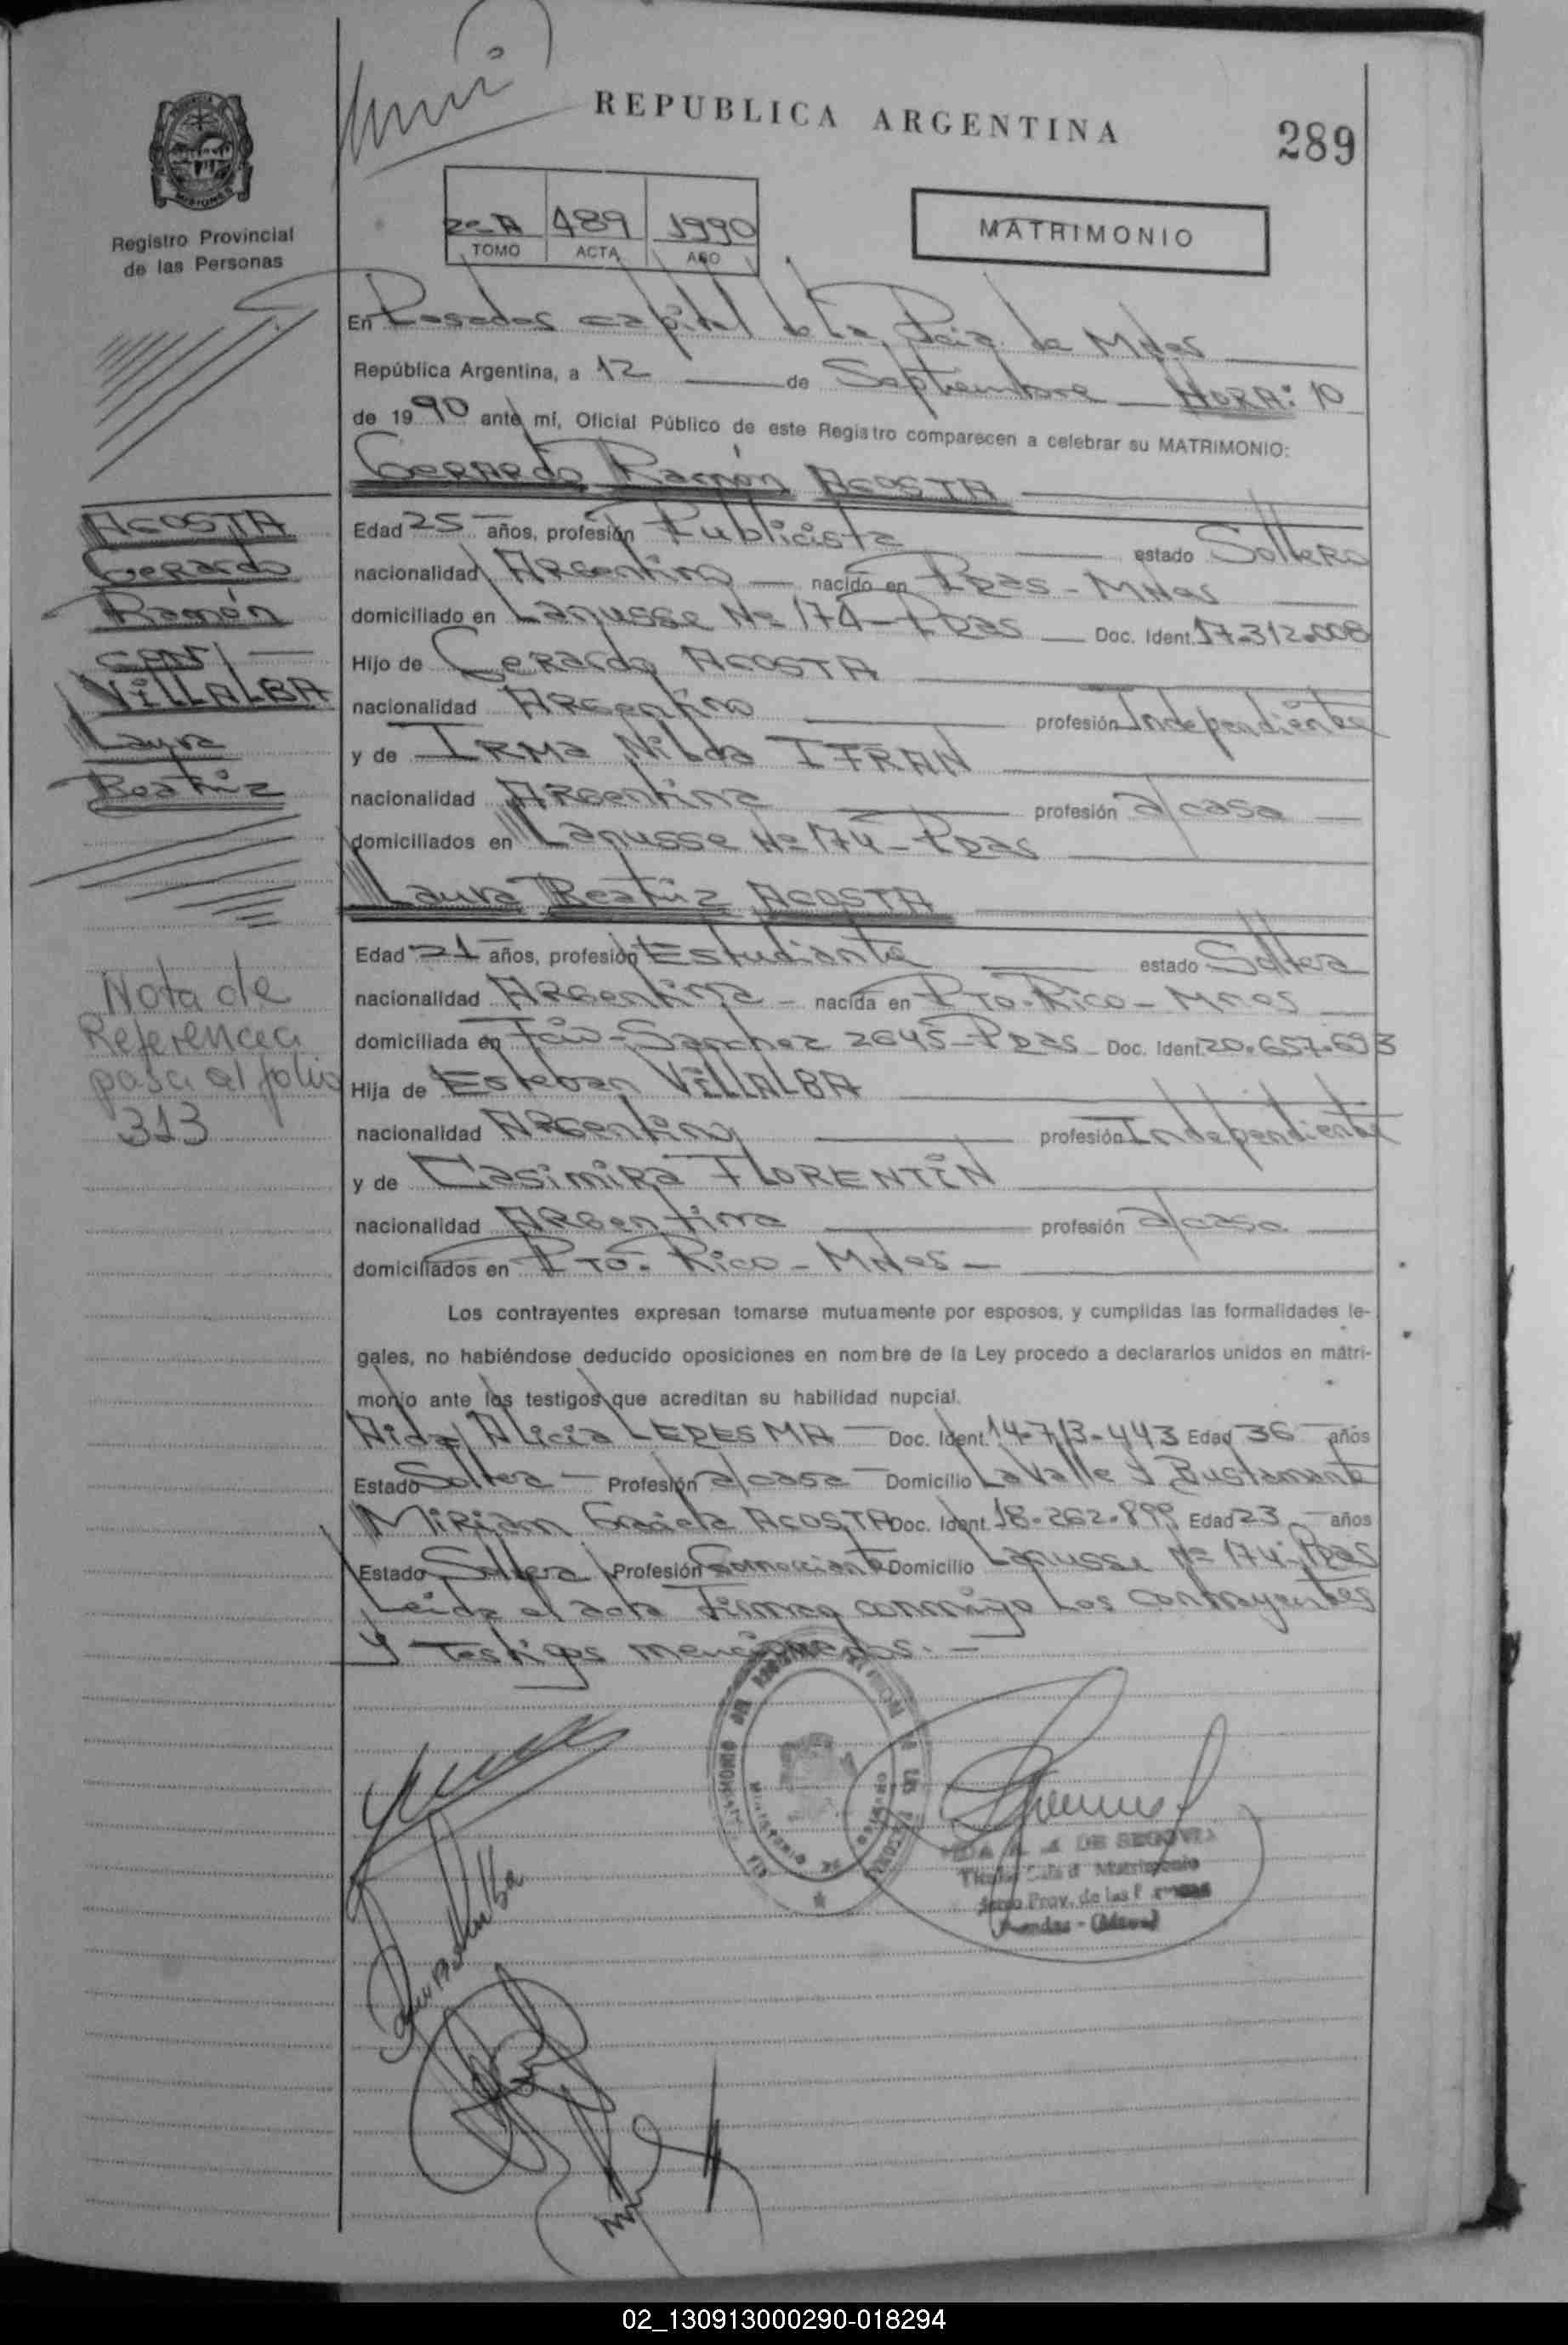 REPUBLICA ARGENTINA
289
MISIONES
Registro Provincial
de las Personas
489 1990
TOMO ACTA AÑO
MATRIMONIO
En Posadas capital de la Pcia. de Mnes
República Argentina, a 12 de Septiembre HORA: 10
de 1990 ante mí, Oficial Público de este Registro comparecen a celebrar su MATRIMONIO:
Gerardo Ramón ACOSTA
Edad 25 años, profesión Publicista estado Soltero
nacionalidad Argentino nacido en Pdas - Mnes
domiciliado en Lanusse Nº 174 - Pdas Doc. Ident. 17.312.008
Hijo de Gerardo ACOSTA
nacionalidad Argentino profesión Independiente
y de Irma Nilda IFRAN
nacionalidad Argentina profesión a/casa
domiciliados en Lanusse Nº 174 - Pdas
Laura Beatriz ACOSTA
Edad 21 años, profesión Estudiante estado Soltera
nacionalidad Argentina - nacida en Pto. Rico - Mnes
domiciliada en Fco. Sanchez 2645 - Pdas Doc. Ident. 20.657.693
Hija de Esteban VILLALBA
nacionalidad Argentino profesión Independiente
y de Casimira FLORENTIN
nacionalidad Argentina profesión a/casa
domiciliados en Pto. Rico - Mnes -
Los contrayentes expresan tomarse mutuamente por esposos, y cumplidas las formalidades le-
gales, no habiéndose deducido oposiciones en nombre de la Ley procedo a declararlos unidos en matri-
monio ante los testigos que acreditan su habilidad nupcial.
Aida Alicia LEDESMA - Doc. Ident. 14.713.443 Edad 36 años
Estado Soltera - Profesión a/casa - Domicilio Lavalle y Bustamante
Miriam Graciela ACOSTA Doc. Ident. 18.262.899 Edad 23 años
Estado Soltera Profesión Comerciante Domicilio Lanusse Nº 174 - Pdas
Leida el acta firman conmigo los contrayentes
y testigos mencionados. -
ACOSTA
Gerardo
Ramón
CON
VILLALBA
Laura
Beatriz
Nota de
Referencia
pasa al folio
313
DE SEGOVIA
Prov. de las
02_130913000290-018294